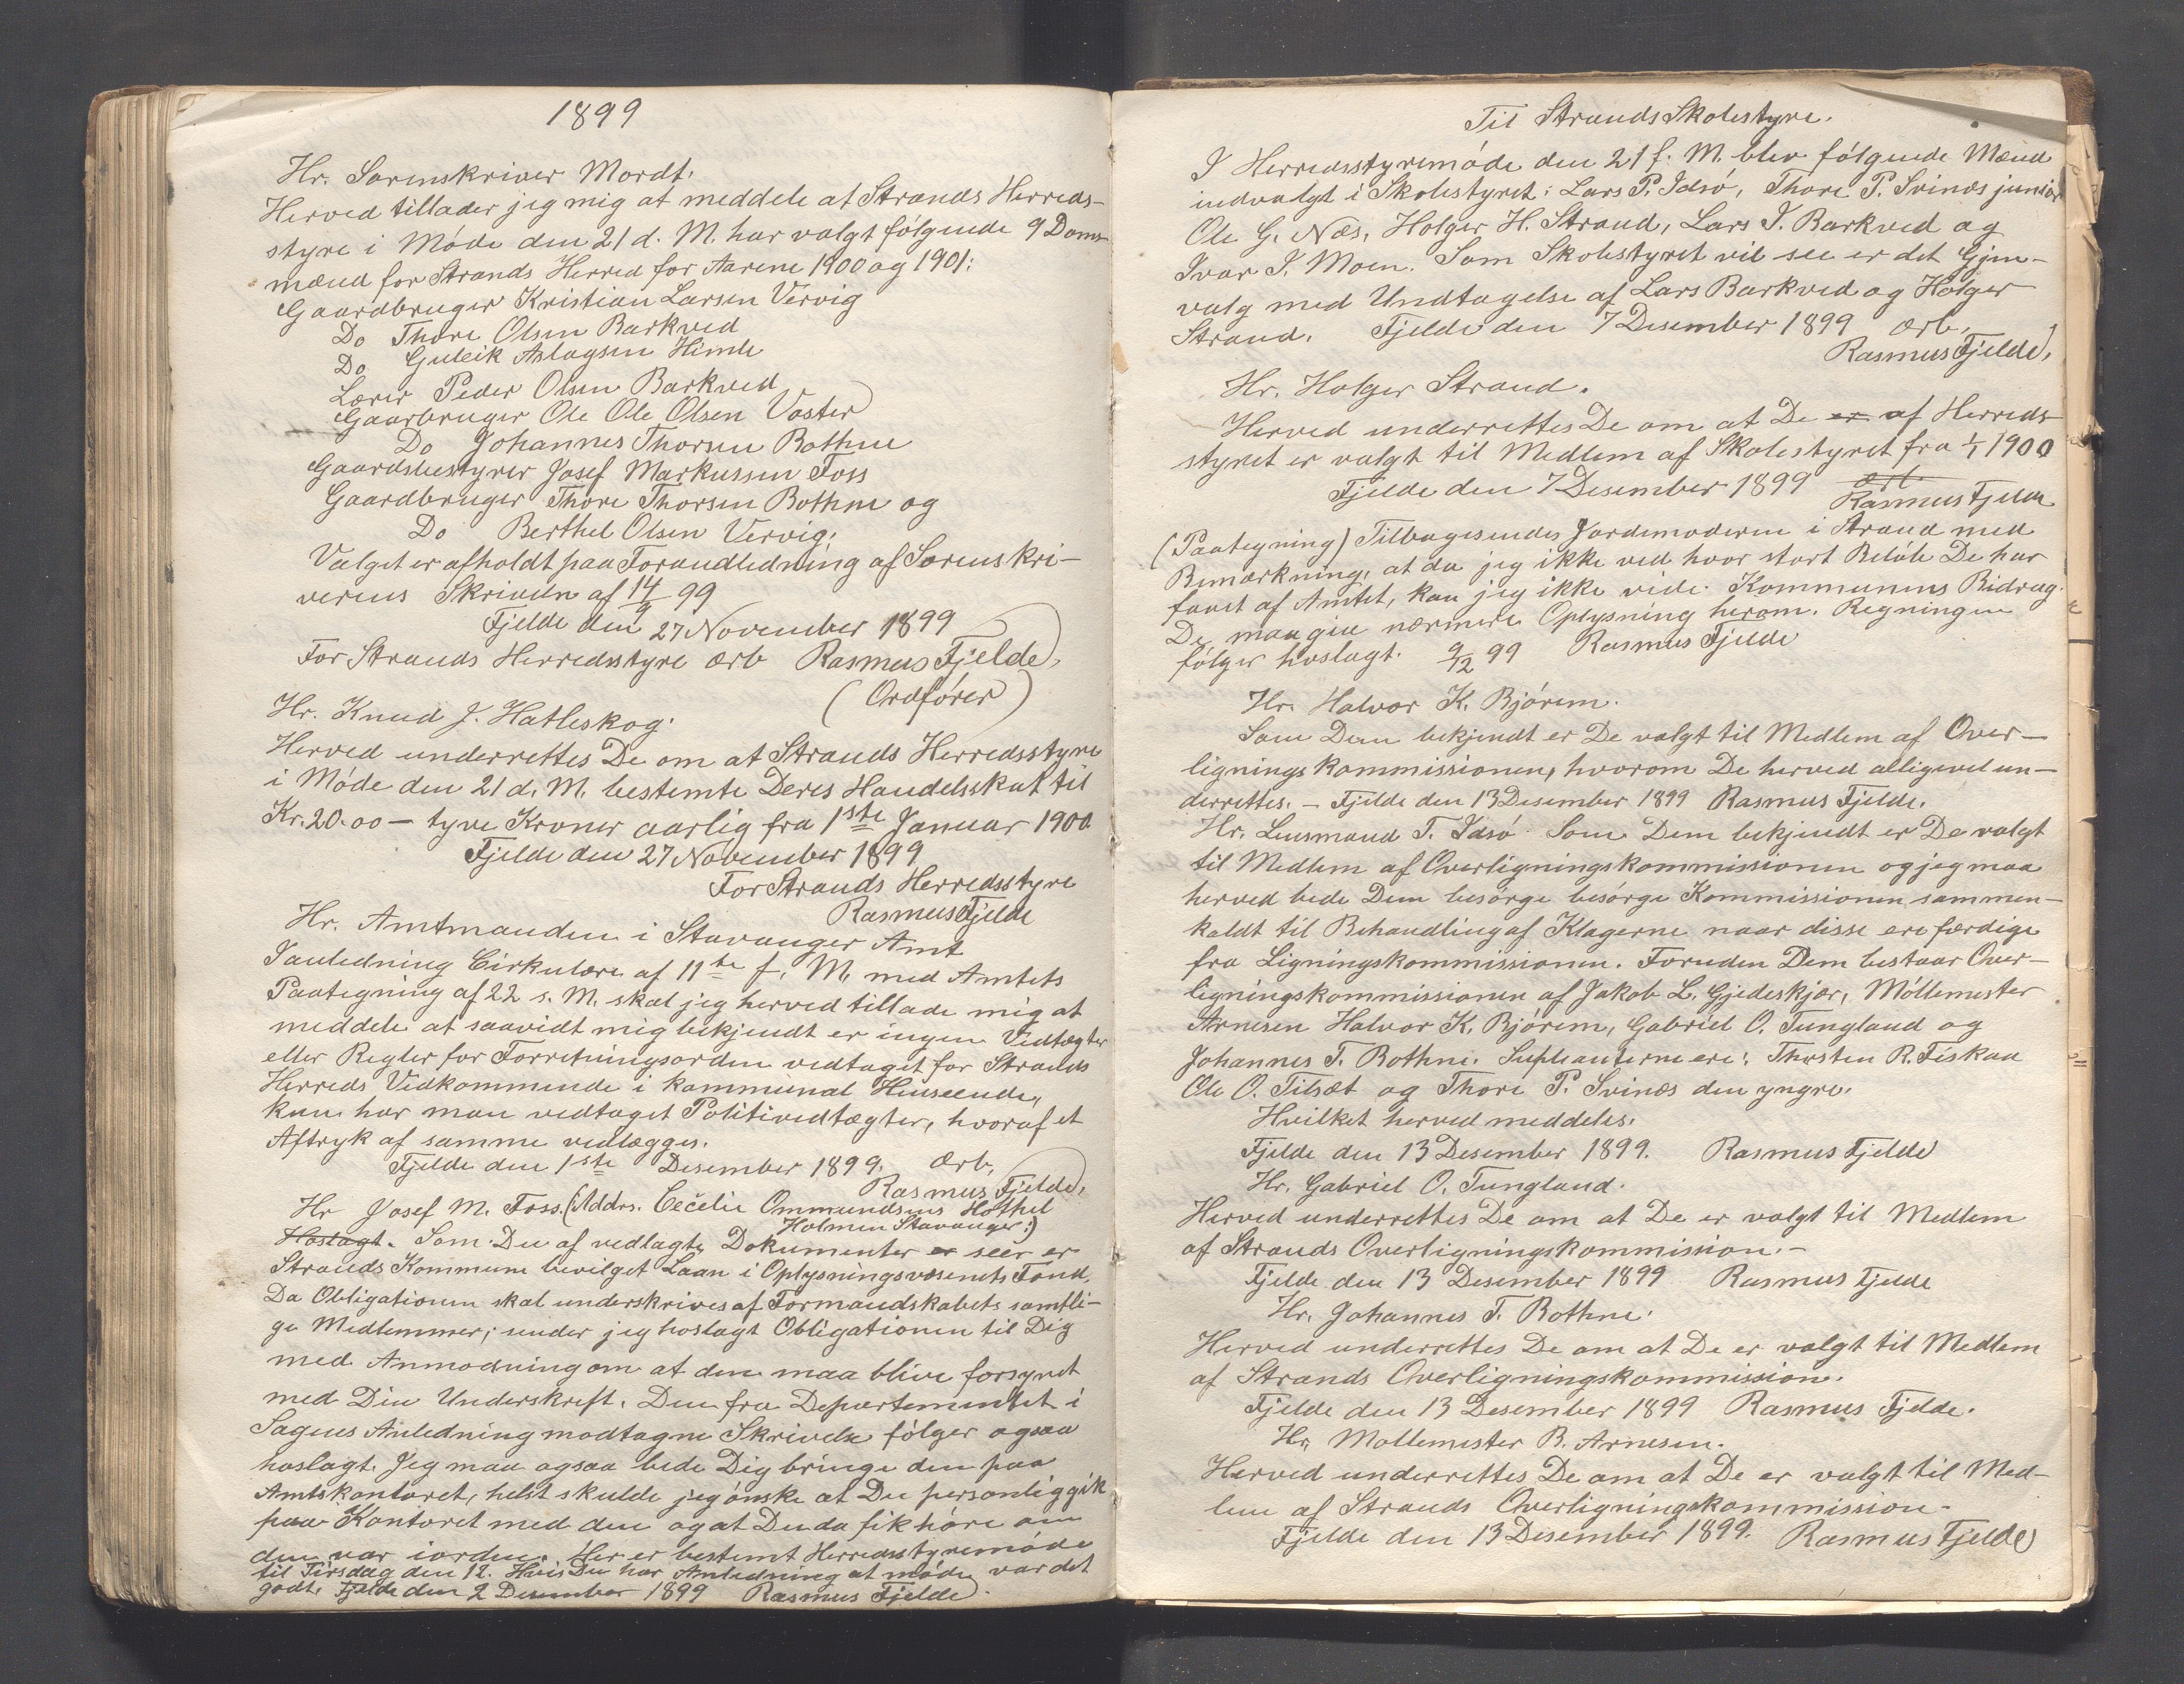 1899
Hr. Sorenskriver Mordt.
Herved tillader jeg mig at meddele at Strands Herreds-
styre i Møde den 21 d. M. har valgt følgende 9 Doms-
mænd for Strands Herred for Aarene 1900 og 1901:
Gaardbruger Kristian Larsen Vervig
Do Thore Olsen Barkved
Do Guleik Aslagsen Himle
Lærer Peder Olsen Barkved
Gaarbruger Ole Ole Olsen Voster
Do Johannes Thorsen Bothne
Gaardsbestyrer Josef Markussen Foss
Gaardbruger Thore Thorsen Bothne og
Do Berthel Olsen Vervig.
Valget er afholdt paa Foranledning af Sorenskri-
verens Skriveln af 14/9 99
Fjelde den 27 November 1899
For Strands Herredsstyre ærb Rasmus Fjelde,
(Ordfører)
Hr. Knud J. Hatleskog.
Herved underrettes De om at Strands Herredsstyre
i Møde den 21 d. M. bestemte Deres Handelsskat til
Kr. 20.00 — tyve Kroner aarlig fra 1ste Januar 1900
Fjelde den 27 November 1899
For Strands Herredsstyre
Rasmus Fjelde
Hr. Amtmanden i Stavanger Amt
Ianledning Cirkulære af 11te f. M. med Amtets
Paategning af 22 s. M. skal jeg herved tillade mig at
meddele at saavidt mig bekjendt er ingen Vedtægter
eller Regler for Forretningsorden vedtaget for Strands
Herreds Vedkommende i kommunal Henseende,
kun har man vedtaget Politivedtægter, hvoraf et
Aftryk af samme vedlægges.
Fjelde den 1ste Desember 1899. ærb,
Rasmus Fjelde,
Hr Josef M. Foss. (Addrs. Cecelie Ommundsens Hothel
Holmen Stavanger:)
Hoslagt. Som Du af vedlagte Dokumenter er seer er
Strands Kommune bevilget Laan i Oplysningsvæsenets Fond.
Da Obligationen skal underskrives af Formandskabets samtli-
ge Medlemmer; sender jeg hoslagt Obligationen til Dig
med Anmodning om at den maa blive forsynet
med Din Underskrift. Den fra Departementet i
Sagens Anledning modtagne Skrivelse følger ogsaa
hoslagt. Jeg maa ogsaa bede Dig bringe den paa
Amtskontoret, helst skulde jeg ønske at Du personlig gik
paa Kontoret med den og at Du da fik høre om
den var iorden. Her er bestemt Herredsstyremøde
til Tirsdag den 12. Hvis Du har Anledning at møde var det
godt. Fjelde den 2 Desember 1899 Rasmus Fjelde.
Til Strands Skolestyre.
I Herredsstyremøde den 21 f. M. blev følgende Mænd
indvalgt i Skolestyret: Lars P. Idsø, Thore P. Svines junior
Ole G. Næs, Holger H. Strand, Lars T. Barkved og
Ivar I. Moen. Som Skolestyret vil see er det Gjen-
valg med Undtagelse af Lars Barkved og Holger
Strand. Fjelde den 7 Desember 1899 ærb,
Rasmus Fjelde,
Hr. Holger Strand.
Herved underrettes De om at De er af Herreds-
styret er valgt til Medlem af Skolestyret fra 1/1 1900
Fjelde den 7 Desember 1899 ærb
Rasmus Fjelde
(Paategning) Tilbagesendes Jordemoderen i Strand med
Bemærkning, at da jeg ikke ved hvor stort Beløb De har
faaet af Amtet, kan jeg ikke vide Kommunens Bidrag.
De maa give nærmere Oplysning herom. Regningen
følger hoslagt. 9/12 99 Rasmus Fjelde
Hr. Halvor K. Bjørem.
Som Dem bekjendt er De valgt til Medlem af Over-
ligningskommissionen, hvorom De herved alligevel un-
derrettes. – Fjelde den 13 Desember 1899 Rasmus Fjelde.
Hr. Lensmand T. Idsø. Som Dem bekjendt er De valgt
til Medlem af Overligningskommissionen og jeg maa
herved bede Dem besørge besørge Kommissionen sammen-
kaldt til Behandling af Klagerne naar disse ere færdige
fra Ligningskommissionen. Foruden Dem bestaar Over-
ligningskommissionen af Jakob L. Gjedeskjær, Møllemester
Arnesen Halvor K. Bjørem, Gabriel O. Tungland og
Johannes T. Bothne. Supleanterne ere: Thosten R. Fiskaa
Ole O. Tilsæt og Thore P. Svines den yngre.
Hvilket herved meddeles.
Fjelde den 13 Desember 1899. Rasmus Fjelde
Hr. Gabriel O. Tungland.
Herved underrettes De om at De er valgt til Medlem
af Strands Overligningskommission. –
Fjelde den 13 Desember 1899 Rasmus Fjelde
Hr. Johannes T. Bothne.
Herved underrettes De om at De er valgt til Medlem
af Strands Overligningskommission.
Fjelde den 13 Desember 1899 Rasmus Fjelde.
Hr. Mollemester B. Arnesen.
Herved underrettes De om at De er valgt til Med-
lem af Strands Overligningskommission.
Fjelde den 13 Desember 1899. Rasmus Fjelde